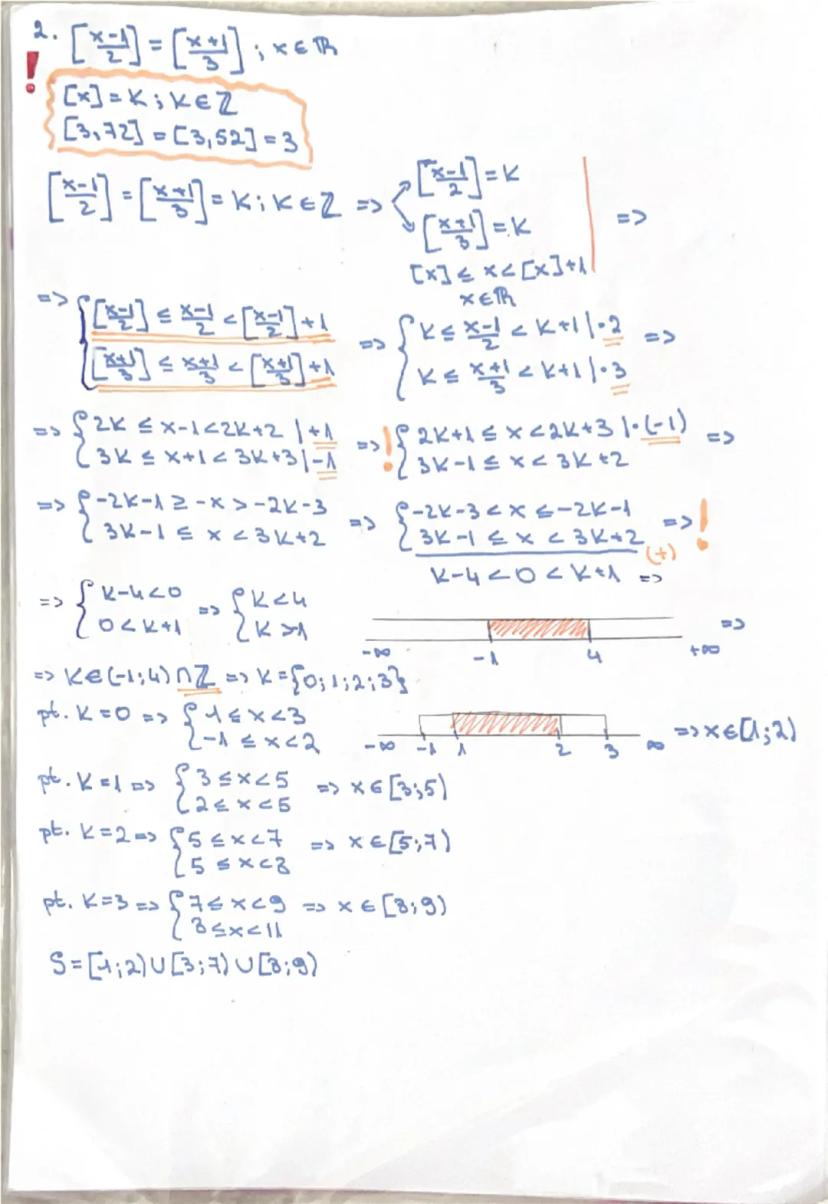 2. [x-1/2] = [x+1/3] ; x∈ℝ
!
[x] = K ; K∈ℤ
[3,72] = [3,52] = 3
[x-1/2] = [x+1/3] = K ; K∈ℤ => [x-1/2] = K
[x+1/3] = K =>
[x] ≤ x < [x]+1
x∈ℝ
=> { [x-1/2] ≤ x-1/2 < [x-1/2]+1 => { K ≤ x-1/2 < K+1 |·2 =>
[x+1/3] ≤ x+1/3 < [x+1/3]+1 K ≤ x+1/3 < K+1 |·3
=> { 2K ≤ x-1 < 2K+2 |+1 => ! { 2K+1 ≤ x < 2K+3 |·(-1) =>
3K ≤ x+1 < 3K+3 |-1 3K-1 ≤ x < 3K+2
=> { -2K-1 ≥ -x > -2K-3 => { -2K-3 < x ≤ -2K-1 => !
3K-1 ≤ x < 3K+2 3K-1 ≤ x < 3K+2
(+)
K-4 < 0 < K+1 =>
=> { K-4<0 => { K<4 =>
0<K+1 K>-1
-∞ -1 4 +∞
=> K∈(-1;4) ∩ ℤ => K={0;1;2;3}
pt. K=0 => { 1 ≤ x < 3
-1 ≤ x < 2 -∞ -1 1 2 3 ∞ => x∈[1;2)
pt. K=1 => { 3 ≤ x < 5 => x∈[3;5)
2 ≤ x < 5
pt. K=2 => { 5 ≤ x < 7 => x∈[5;7)
5 ≤ x < 8
pt. K=3 => { 7 ≤ x < 9 => x∈[8;9)
8 ≤ x < 11
S=[1;2)∪[3;7)∪[8;9)